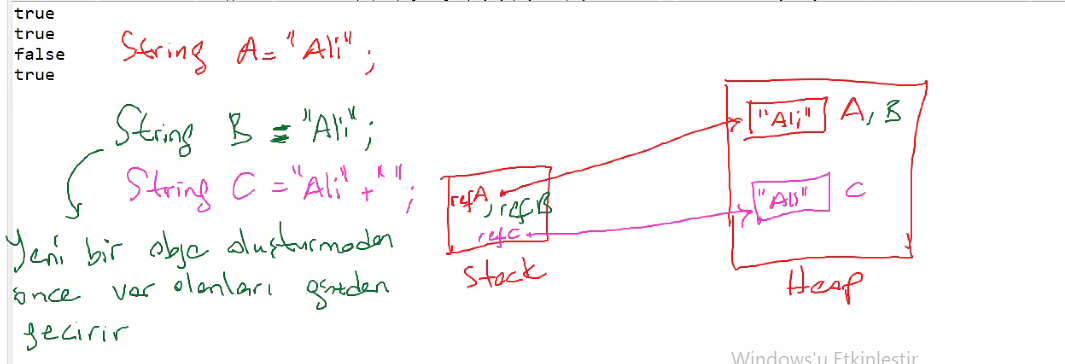 true
true
false
true
String A= "Ali";
String B = "Ali";
String C = "Ali" + " ";
Yeni bir obje oluşturmadan
önce var olanları gözden
geçirir
refA, refB
refC
Stack
"Ali" A, B
"Ali" C
Heap
Windows'u Etkinleştir